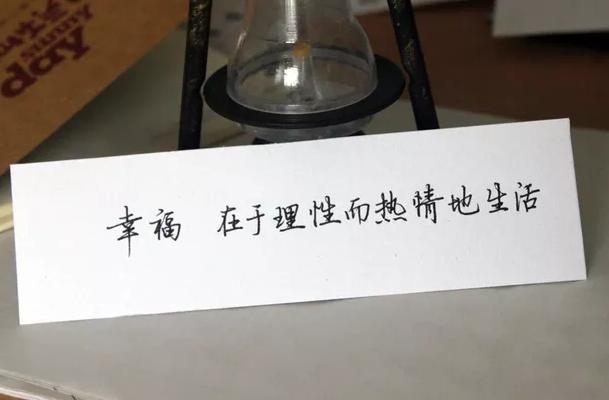 幸福 在于理性而热情地生活